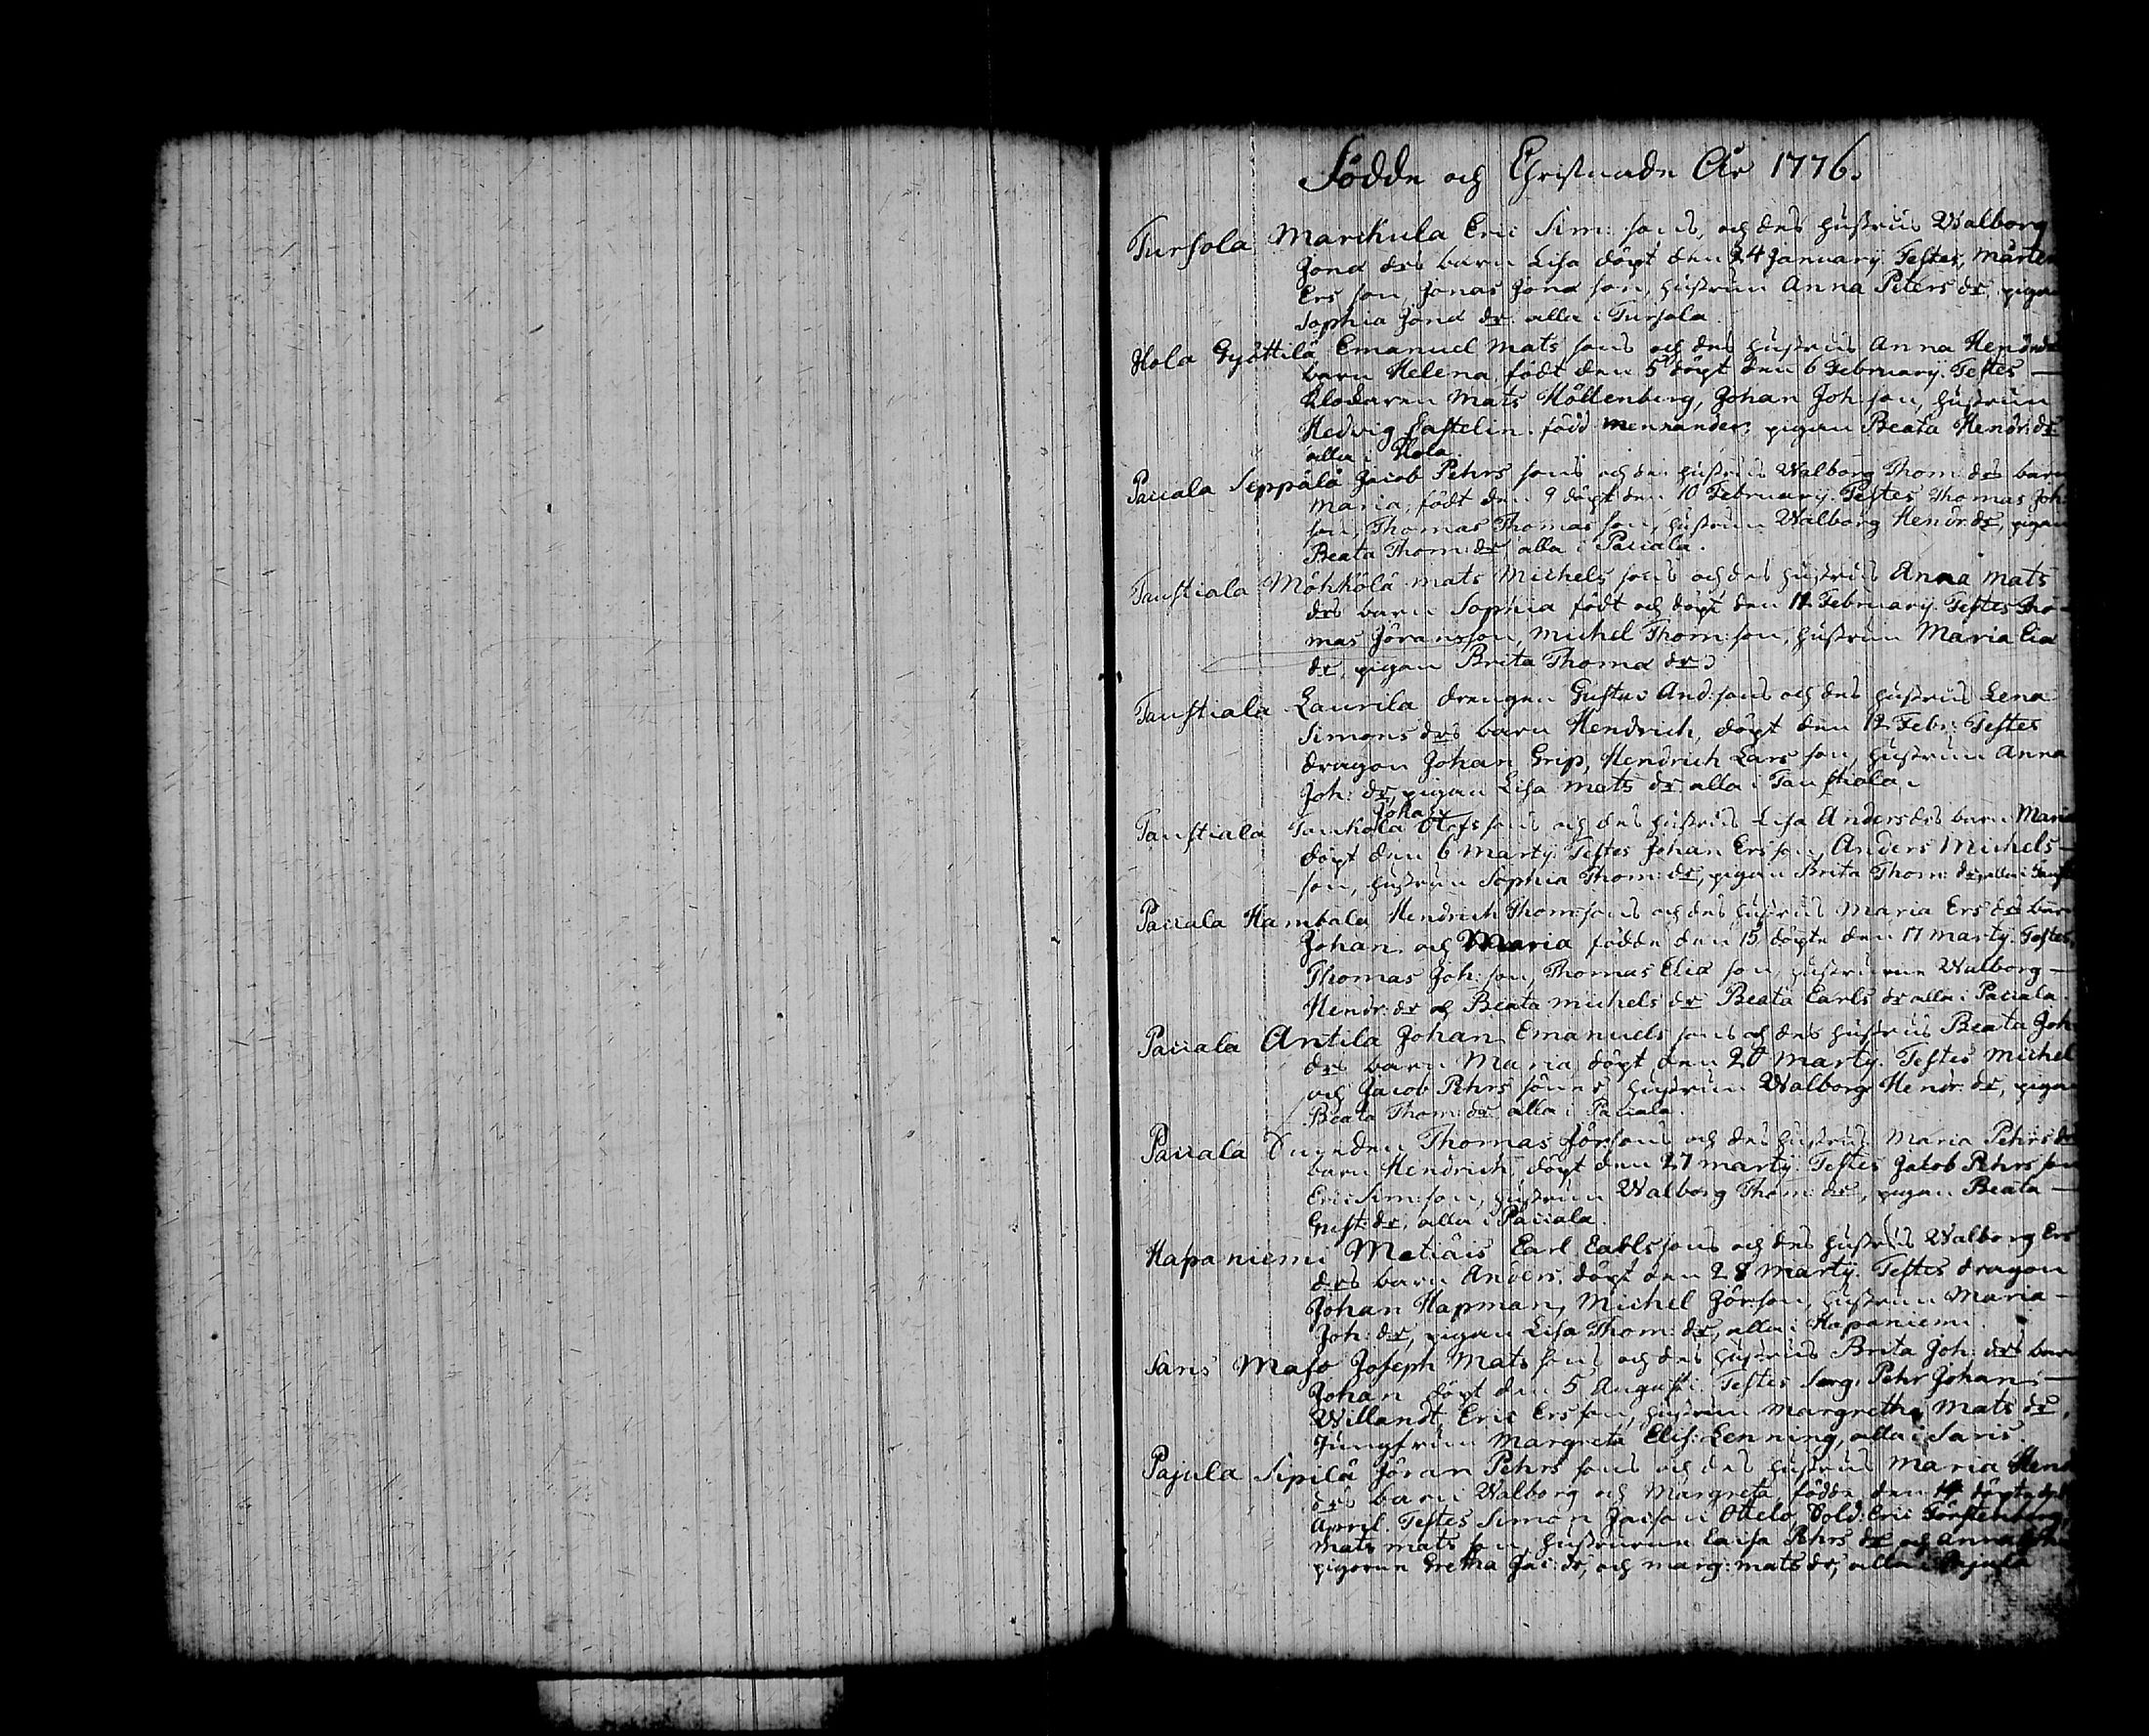 Födde och Christnade År 1776.
Tursola Markula Eric Sim: sons, och des hustrus Walborg
Jona drs barn Lisa döpt den 24 January. Testes, Mårten
Ers son, Jonas Jona son, hustrun Anna Peters dr, pigan
Sophia Jona dr. alla i Tursola.
Hola Gyöttilä Emanuel Mats sons och des hustrus Anna Hendrs
barn Helena, födt den 5 döpt den 6 February. Testes —
Klockaren Mats Höllenberg, Johan Joh: son, hustrun
Hedvig Castelin. född Mennander, pigan Beata Hendr: dr
alla i Hola.
Paciala Seppälä Jacob Pehrs sons och des hustrus Walborg Thom: drs barn
Maria, födt den 9 döpt den 10 February. Testes Thomas Joh:
son, Thomas Thomas son, hustrun Walborg Hendr: dr, pigan
Beata Thom: dr alla i Paciala.
Tauftiala Möhkölä Mats Michels sons och des hustrus Anna Mats
drs barn Sophia födt och döpt den 11 February. Testes Tho-
mas Göransson, Michel Thom: son, hustrun Maria Elia
dr, pigan Brita Thoma dr
Tauftiala Laurila drengen Gustav And: sons och des hustrus Lena
Simons drs barn Hendrich, döpt den 12 Febr: Testes
dragon Johan Grip, Hendrich Lars son, hustrun Anna
Joh: dr, pigan Lisa Mats dr alla i Tauftiala.
Johan
Tauftiala Tamkola Olofs sons och des hustrus Lisa Anders drs barn Maria
döpt den 6 Marty. Testes Johan Ers son, Anders Michels-
son, hustrun Sophia Thom: dr, pigan Brita Thom: dr, alla i
Paciala Hambala Hendrich Thom: sons och des hustrus Maria Ers drs barn
Johan och Maria födde den 15 döpte den 17 Marty. Testes,
Thomas Joh: son, Thomas Elia son, hustrurne Walborg —
Hendr: dr och Beata Michels dr Beata Carls dr alla i Paciala.
Paciala Antila Johan Emanuels sons och des hustrus Beata Joh:
drs barn Maria, döpt den 20 Marty. Testes Michel
och Jacob Pehrs söner, hustrun Walborg Hendr: dr, pigan
Beata Thom: dr alla i Paciala.
Paciala Thomas Jör: sons och des hustrus Maria Pehrs dr
barn Hendrich, döpt den 27 Marty. Testes Jacob Pehrs son
Eric Sim: son, hustrun Walborg Thom: dr, pigan Beata —
Gust: dr, alla i Paciala.
Hapaniemi Matiais Carl Carls sons och des hustrus Walborg Ers
drs barn Anders, döpt den 28 Marty. Testes dragon
Johan Hapman, Michel Jör: son, hustrun Maria —
Joh: dr, pigan Lisa Thom: dr, alla i Hapaniemi.
Saris Maso Joseph Mats sons och des hustrus Brita Joh: drs barn
Johan döpt den 5 Augusti. Testes Serg: Pehr Johan —
Willandt, Eric Ers son, hustrun Margretha Mats dr,
Jungfrun Margreta Elis: Lenning, alla i Saris.
Pajula Sipilä Jöran Pehrs sons och des hustrus Maria Hend
drs barn Walborg och Margreta, födde den 14 döpte den
April. Testes Simon Jac: son i Ottelo, Sold: Eric Törstenberg,
Mats Mats son, hustrurne Caisa Pehrs dr och Anna
pigorne Gretha Jac: dr, och Marg: Mats dr, alla i Pajula